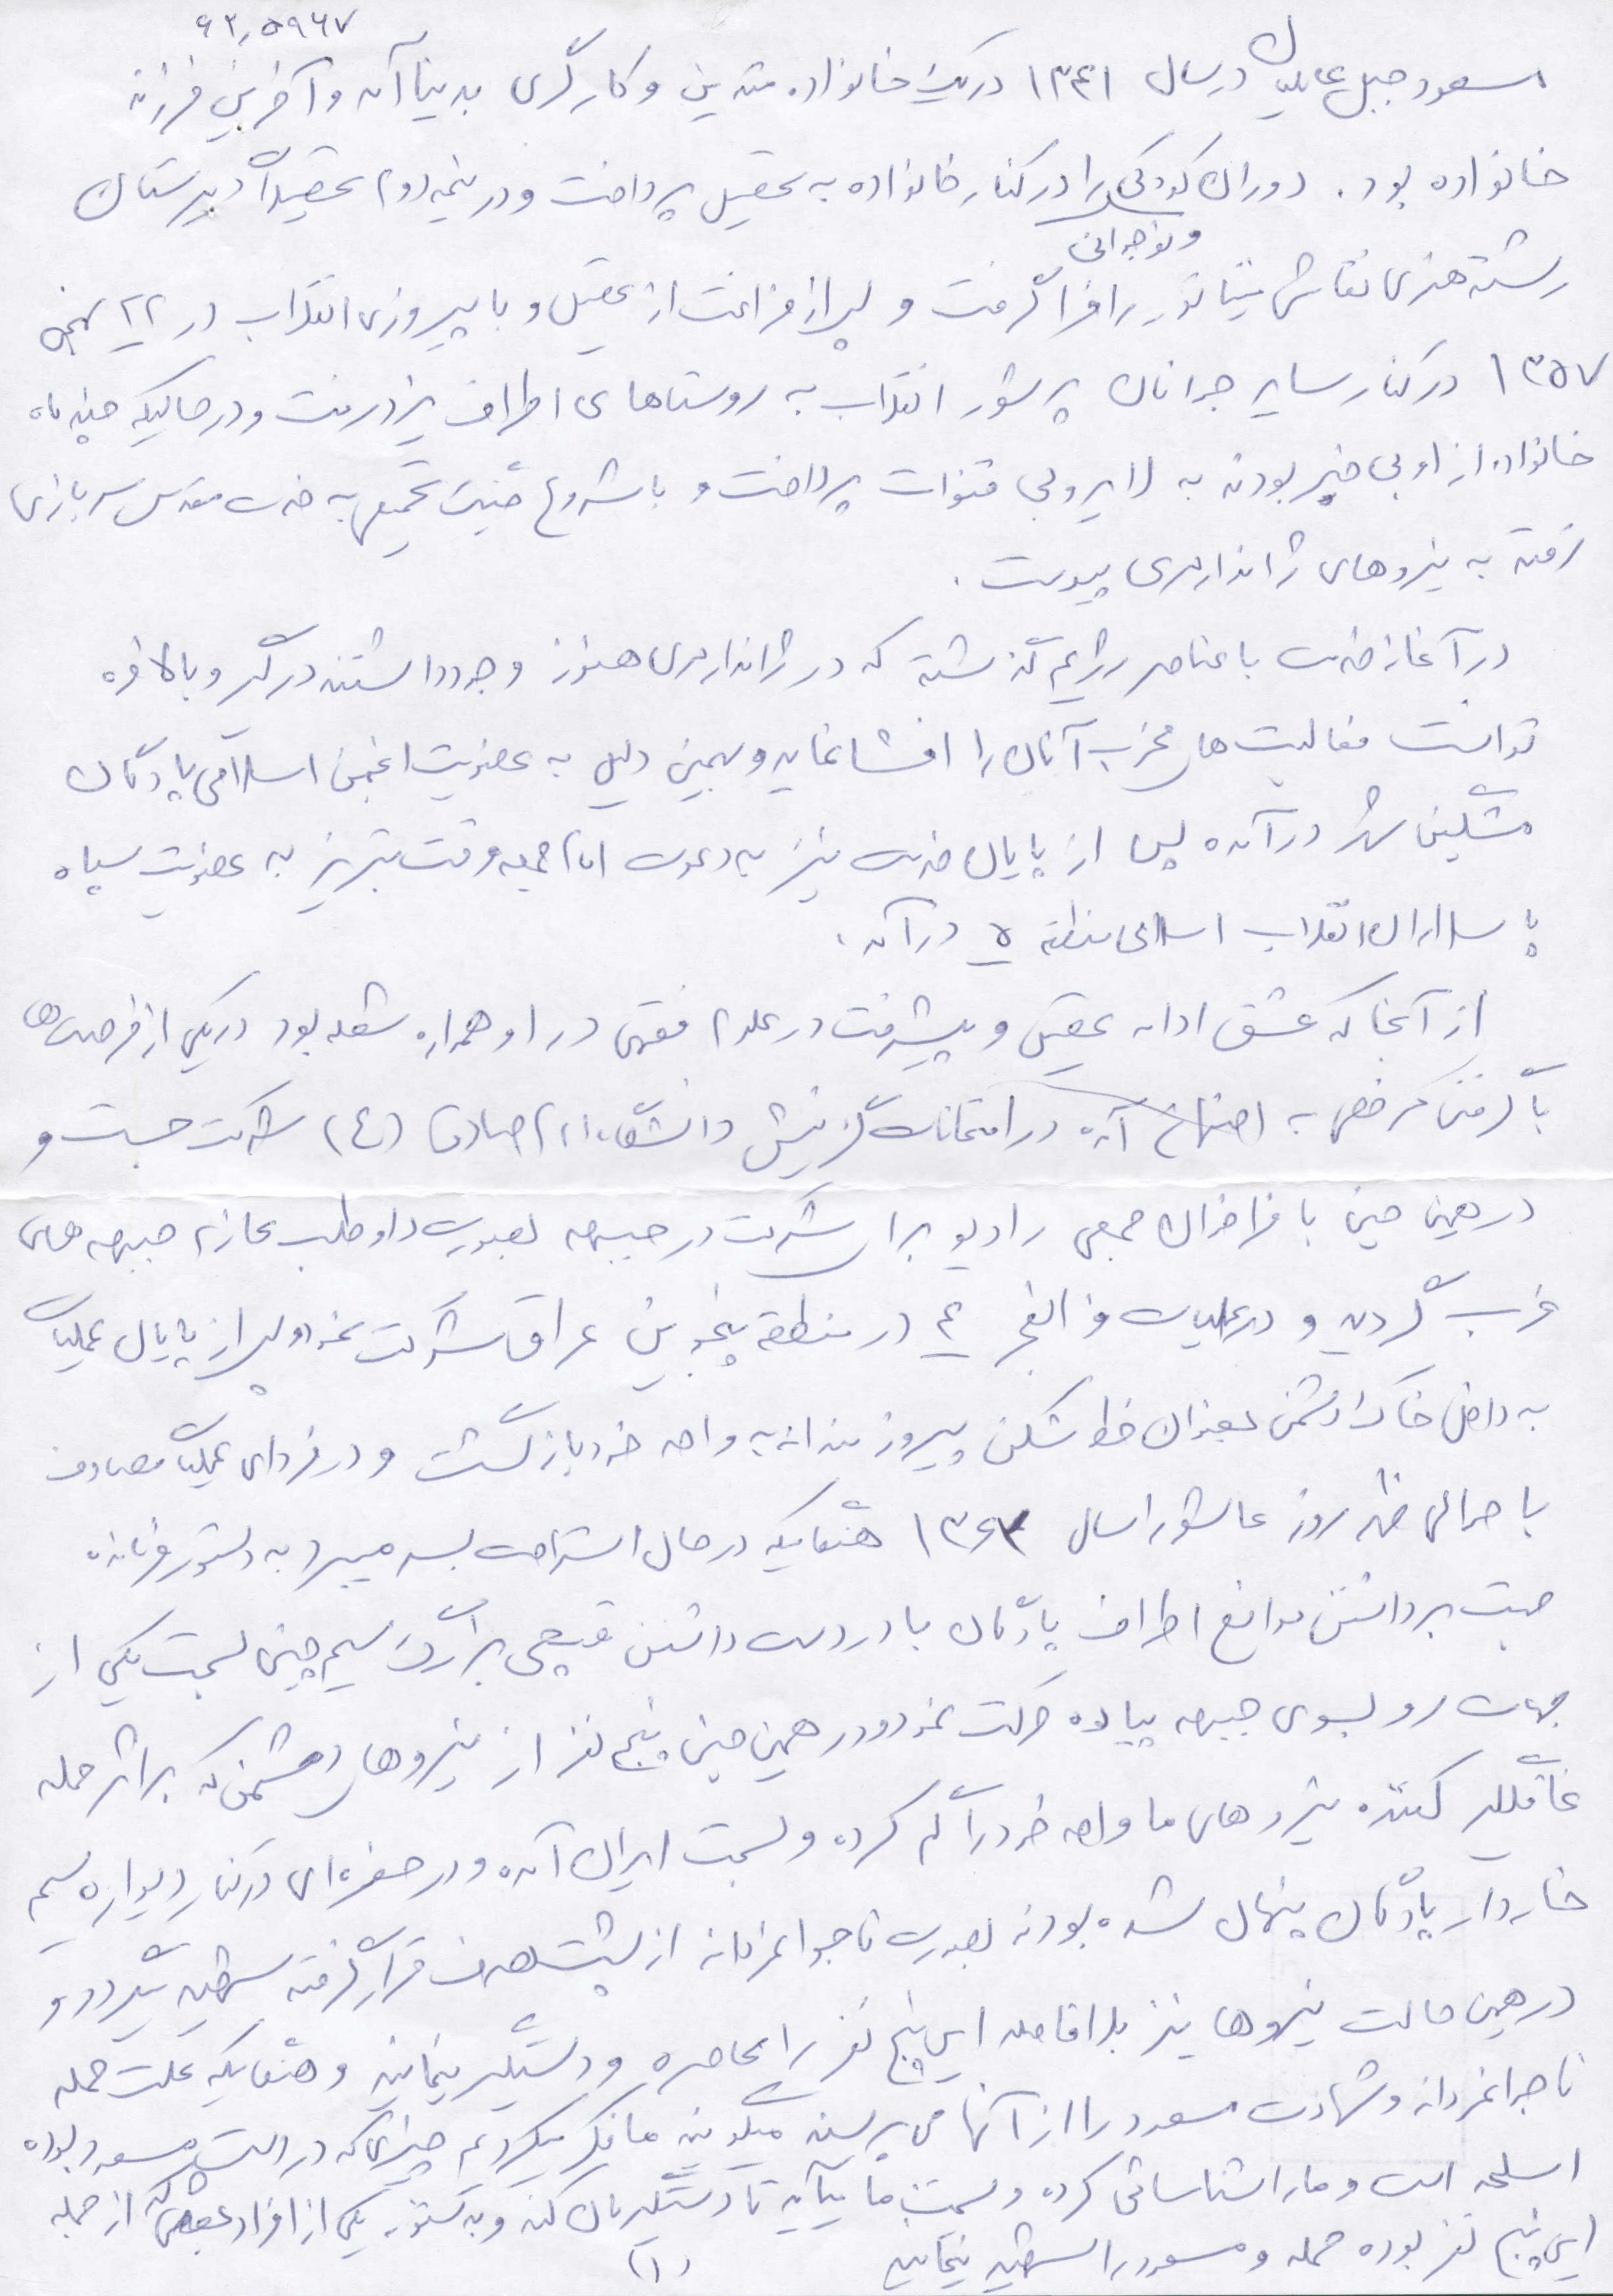 ۶۲٫۵۹۶۷
مسعود جبل عاملیان در سال ۱۳۴۱ در یک خانواده متدین و کارگری بدنیا آمد و آخرین فرزند
خانواده بود. دوران کودکی و نوجوانی را در کنار خانواده به تحصیل پرداخت و در نیمه دوم تحصیلات دبیرستان
رشته هنری نقاشی مینیاتور را فرا گرفت و پس از فراغت از تحصیل و با پیروزی انقلاب در ۲۲ بهمن
۱۳۵۷ در کنار سایر جوانان پرشور انقلاب به روستاهای اطراف یزد رفت و در حالیکه چند ماه
خانواده از او بی خبر بودند به لایروبی قنوات پرداخت و با شروع جنگ تحمیلی به خدمت مقدس سربازی
رفته به نیروهای ژاندارمری پیوست.
در آغاز خدمت با عناصر رژیم گذشته که در ژاندارمری هنوز وجود داشتند درگیر و بالاخره
توانست فعالیت های مخرب آنان را افشا نماید و بهمین دلیل به عضویت انجمن اسلامی پادگان
مشکین شهر درآمده پس از پایان خدمت نیز به دعوت امام جمعه وقت تبریز به عضویت سپاه
پاسداران انقلاب اسلامی منطقه ۵ درآمد.
از آنجا که عشق ادامه تحصیل و پیشرفت در علوم فقهی در او همواره شعله بود در یکی از فرصت ها
با گرفتن مرخصی به اصفهان آمده در امتحانات گزینش دانشگاه امام صادق (ع) شرکت جست و
در همین حین با فراخوان جمعی رادیو برای شرکت در جبهه بصورت داوطلب عازم جبهه های
غرب گردید و در عملیات والفجر ۴ در منطقه پنجوین عراق شرکت نمود و پس از پایان عملیات
به داخل خاک دشمن بعنوان خط شکن پیروزمندانه به واحد خود بازگشت و در فردای عملیات مصادف
با حوالی ظهر روز عاشورا سال ۱۳۶۲ هنگامیکه در حال استراحت بسر میبرد به دستور فرمانده
جهت برداشتن موانع اطراف پادگان با در دست داشتن قیچی برای سیم چینی بسمت یکی از
جهات رو بسوی جبهه پیاده حرکت نمود و در همین حین پنج نفر از نیروهای دشمن که بر اثر حمله
غافلگیر کننده نیروهای ما واحد خود را گم کرده و بسمت ایران آمده و در حفره ای در کنار دیواره سیم
خاردار پادگان پنهان شده بودند بصورت ناجوانمردانه از پشت هدف قرار گرفته شهید میگردد و
در همین حالت نیروها نیز بلافاصله این پنج نفر را محاصره و دستگیر مینمایند و هنگامیکه علت حمله
ناجوانمردانه و شهادت مسعود را از آنها می پرسند میگویند ما فکر میکردیم چیزی که در دست مسعود بوده
اسلحه است و ما را شناسائی کرده و بسمت ما میآید تا دستگیرمان کند و به دستور یکی از افراد بعثی که از جمله
این پنج نفر بوده حمله و مسعود را شهید مینمایند
(۱)